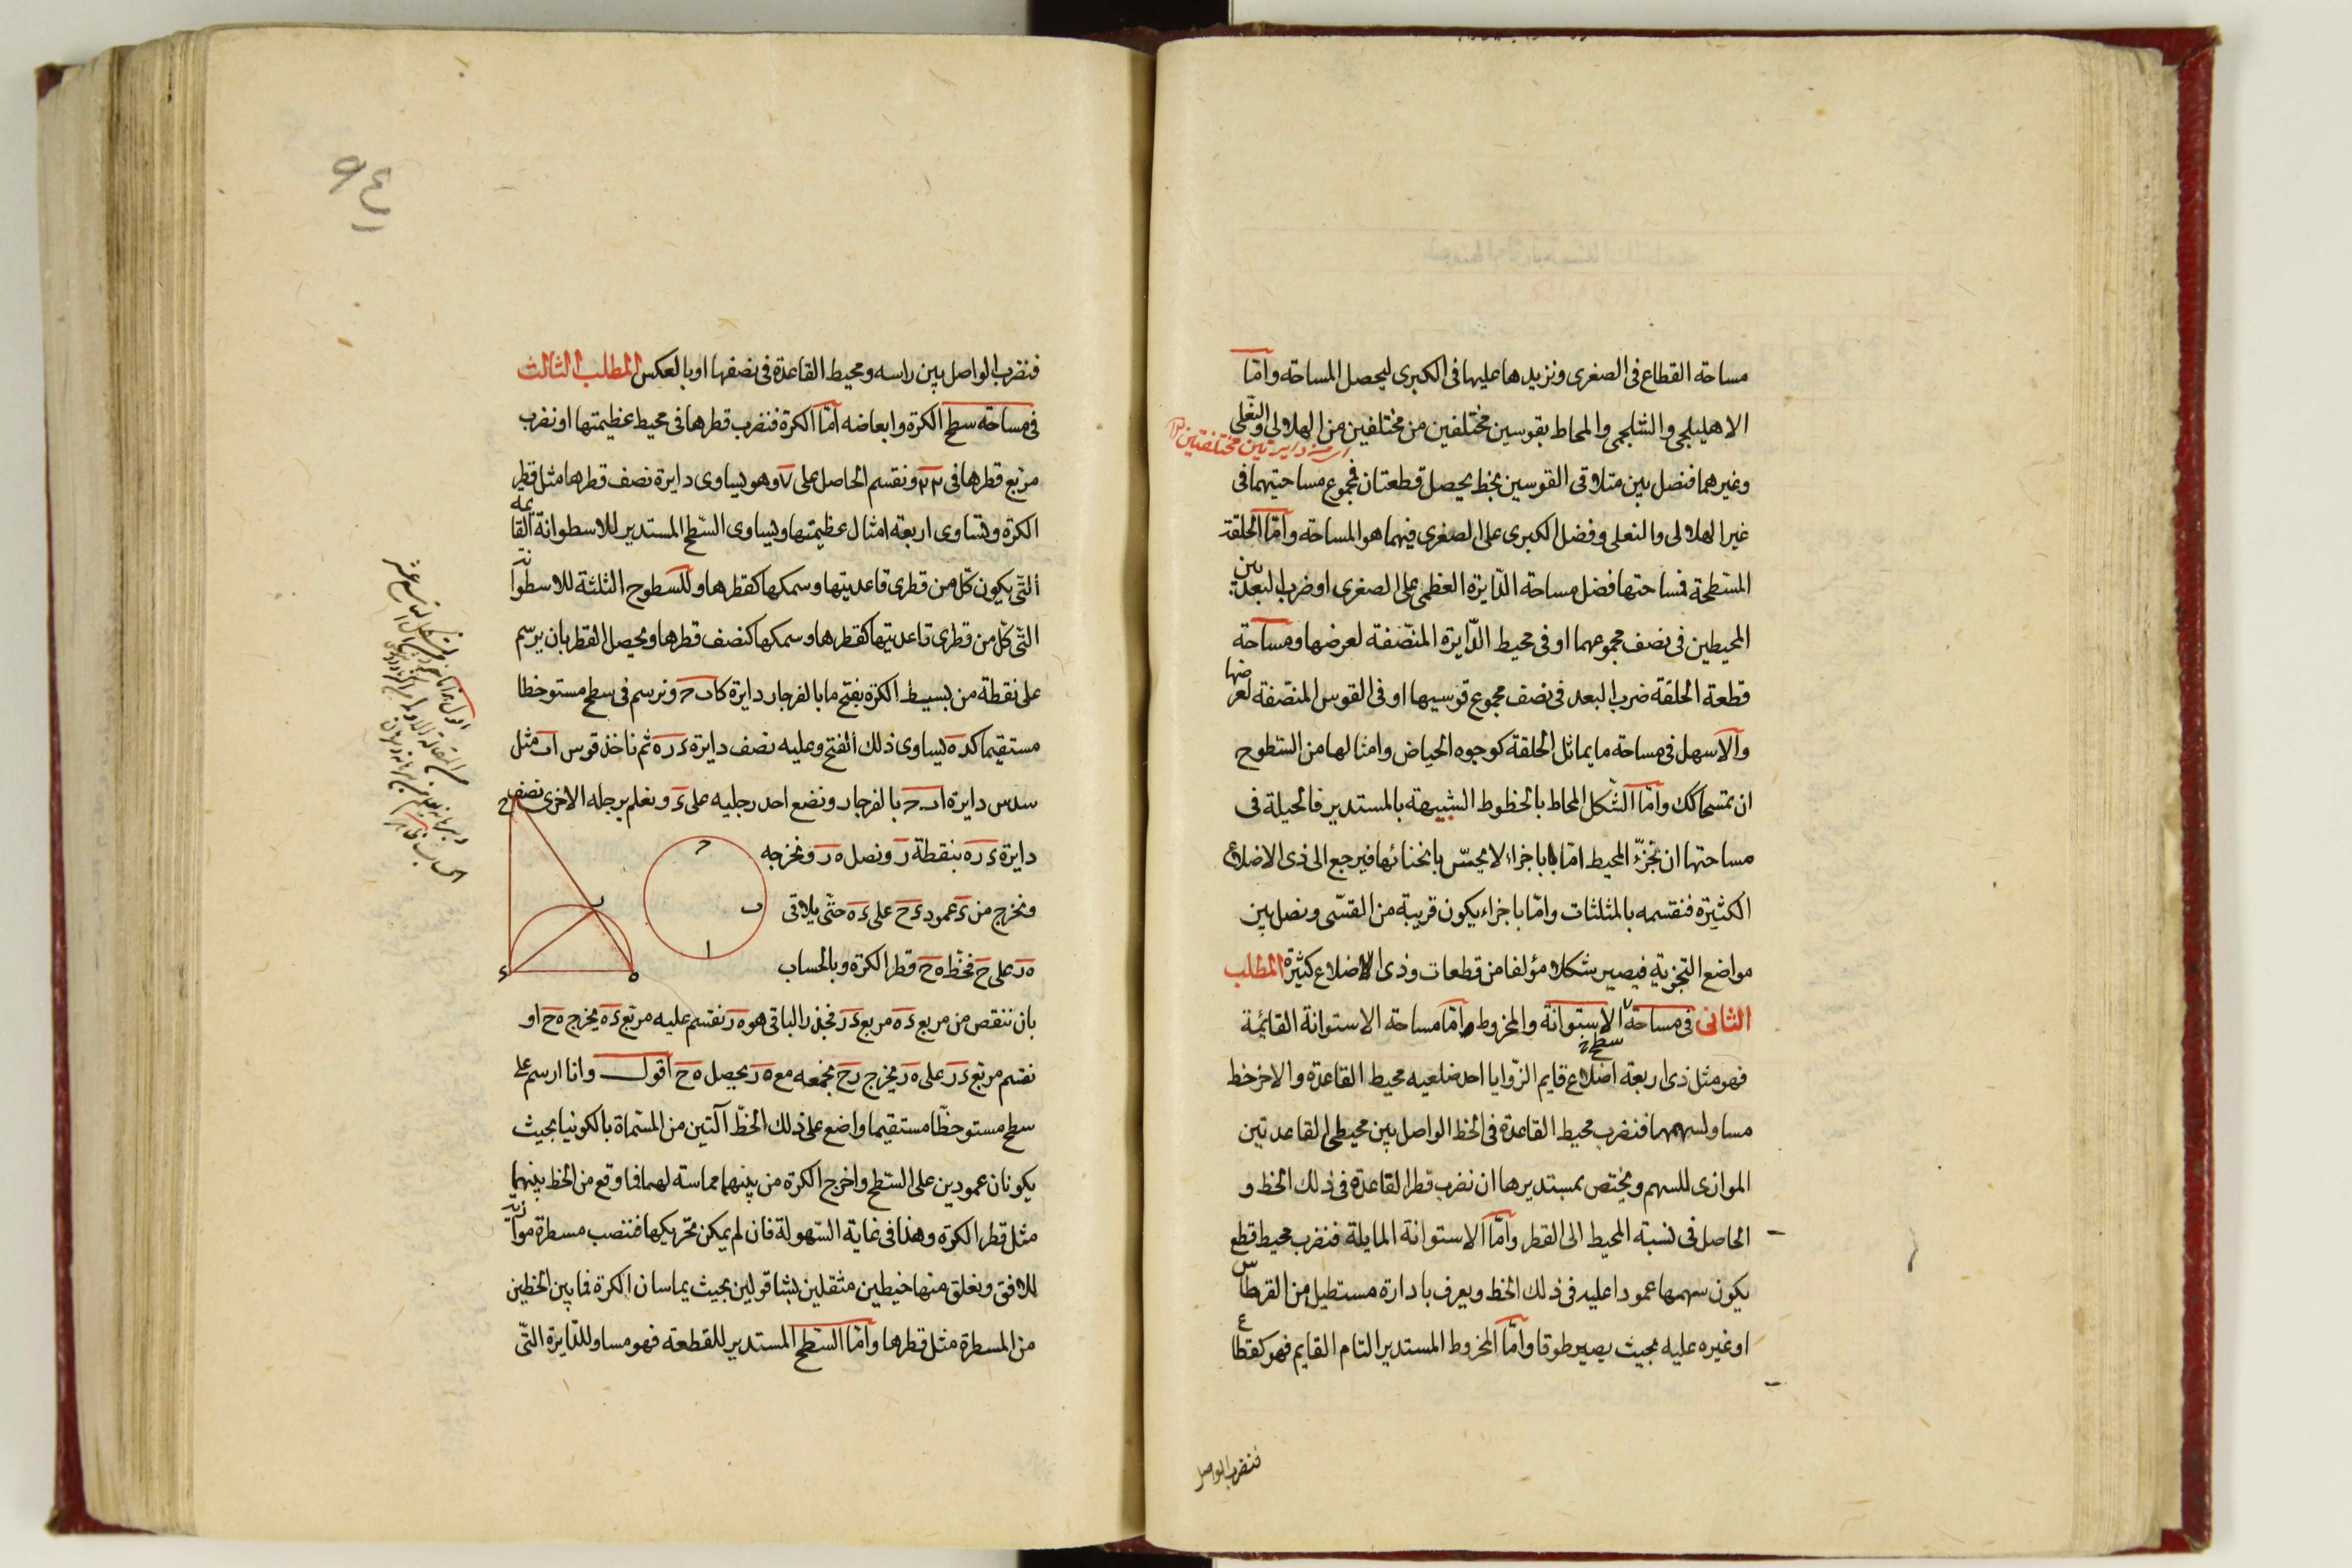 مساحة القطاع فى الصغرى ونزيدها عليها فى الكبرى ليحصل المساحة وامّا
الاهليلجى والشلجمى والمحاط بقوسين مختلفين من مختلفين من الهلالى والنعلى
اى من دايرتين مختلفتين
وغيرهما فنصل بين متلاقى القوسين بخط يحصل قطعتان فمجموع مساحتيهما فى
غير الهلالى والنعلى وفضل الكبرى على الصغرى فيهما هو المساحة وامّا الحلقة
المسّطحة فمساحتها فضل مساحة الدّايرة العظمى على الصغرى او ضرب البعد بين
المحيطين فى نصف مجموعهما او فى محيط الدّايرة المنصّفة لعرضها ومساحة
قطعة الحلقة ضرب البعد فى نصف مجموع قوسيها او فى القوس المنصّفة لعرضها
والاسهل فى مساحة ما يماثل الحلقة كوجوه الحياض وامثالها من السّطوح
ان تمسحا كك وامّا الشّكل المحاط بالخطوط الشبيهة بالمستدير فالحيلة فى
مساحتها ان نجزّء المحيط امّا باجزاء لا يحسّ بانحنائها فيرجع الى ذى الاضلاع
الكثيرة فنقسمه بالمثلثات وامّا باجزاء يكون قريبة من القسّى ونصل بين
مواضع التجزية فيصير شكلا مؤلفا من قطعات وذى الاضلاع كثيرة المطلب
الثانى فى مساحة الاستوانة والمخروط وامّا مساحة الاستوانة القائمة
سطح
فهو مثل ذى اربعة اضلاع قايم الزّوايا احد ضلعيه محيط القاعدة والاخر خط
مساو لسهمها فنضرب محيط القاعدة فى الخط الواصل بين محيطى القاعدتين
الموازى للسهم ويختص بمستديرها ان نضرب قطر القاعدة فى ذلك الخط و
الحاصل فى نسبة المحيط الى القطر وامّا الاستوانة المايلة فنضرب محيط قطع
يكون سهمها عمودا عليه فى ذلك الخط ويعرف بادارة مستطيل من القرطاس
او غيره عليه بحيث يصير طوقا وامّا المخروط المستدير التام القايم فهو كقطاع
فنضرب الواصل
٩٤
فنضرب الواصل بين راسه ومحيط القاعدة فى نصفها او بالعكس المطلب الثالث
فى مساحة سطح الكرة وابعاضه امّا الكرة فنضرب قطرها فى محيط عظيمتها او نضرب
مربّع قطرها فى ٢٢ ونقسم الحاصل على ٧ وهو يساوى دايرة نصف قطرها مثل قطر
الكرة وتساوى اربعة امثال عظيمتها ويساوى السّطح المستدير للاسطوانة القايمة
الّتى يكون كلّ من قطرى قاعديتها وسمكها كقطرها وللسطوح الثلثة للاسطوانة
الّتى كلّ من قطرى قاعديتها كقطرها وسمكها كنصف قطرها ويحصل القطر بان يرسم
على نقطة من بسيط الكرة بفتح ما بالفرجار دايرة كاب ح ونرسم فى سطح مستو خطا
مستقيما كد ه يساوى ذلك الفتح وعليه نصف دايرة ء ر ه ثم ناخذ قوس اب مثل
سدس دايرة اب ح بالفرجار ونضع احد رجليه على ء ونعلم برجله الاخرى نصف
دايرة ء ر ه بنقطة ر ونصل ه ر ونخرجه
ونخرج من ء عمود ء ح على ء ه حتّى يلاقى
ه ر على ح فخط ه ح قطر الكرة وبالحساب
ح
ر
ء
ه
ح
ب
ا
بان ننقص من مربع ء ه مربع ء ر فجذر الباقى هو ه ر نقسم عليه مربّع ء ه يخرج ه ح او
نقسم مربّع ء ر على ه ر يخرج ر ح نجمعه مع ه ر يحصل ه ح اقول وانا ارسم على
سطح مستو خطّا مستقيما واضع على ذلك الخطّ آلتين من المسّماة بالكونيا بحيث
يكونان عمودين على السّطح واخرج الكرة من بينهما مماسة لهما فما وقع من الخط بينهما
مثل قطر الكرة وهذا فى غاية السّهولة فان لم يمكن تحريكها فننصب مسطرة موازية
للافق ونعلق منها خيطين مثقلين بشاقولين بحيث يماسان الكرة فما بين الخطين
من المسطرة مثل قطرها وامّا السّطح المستدير للقطعة فهو مساو للدّايرة الّتى